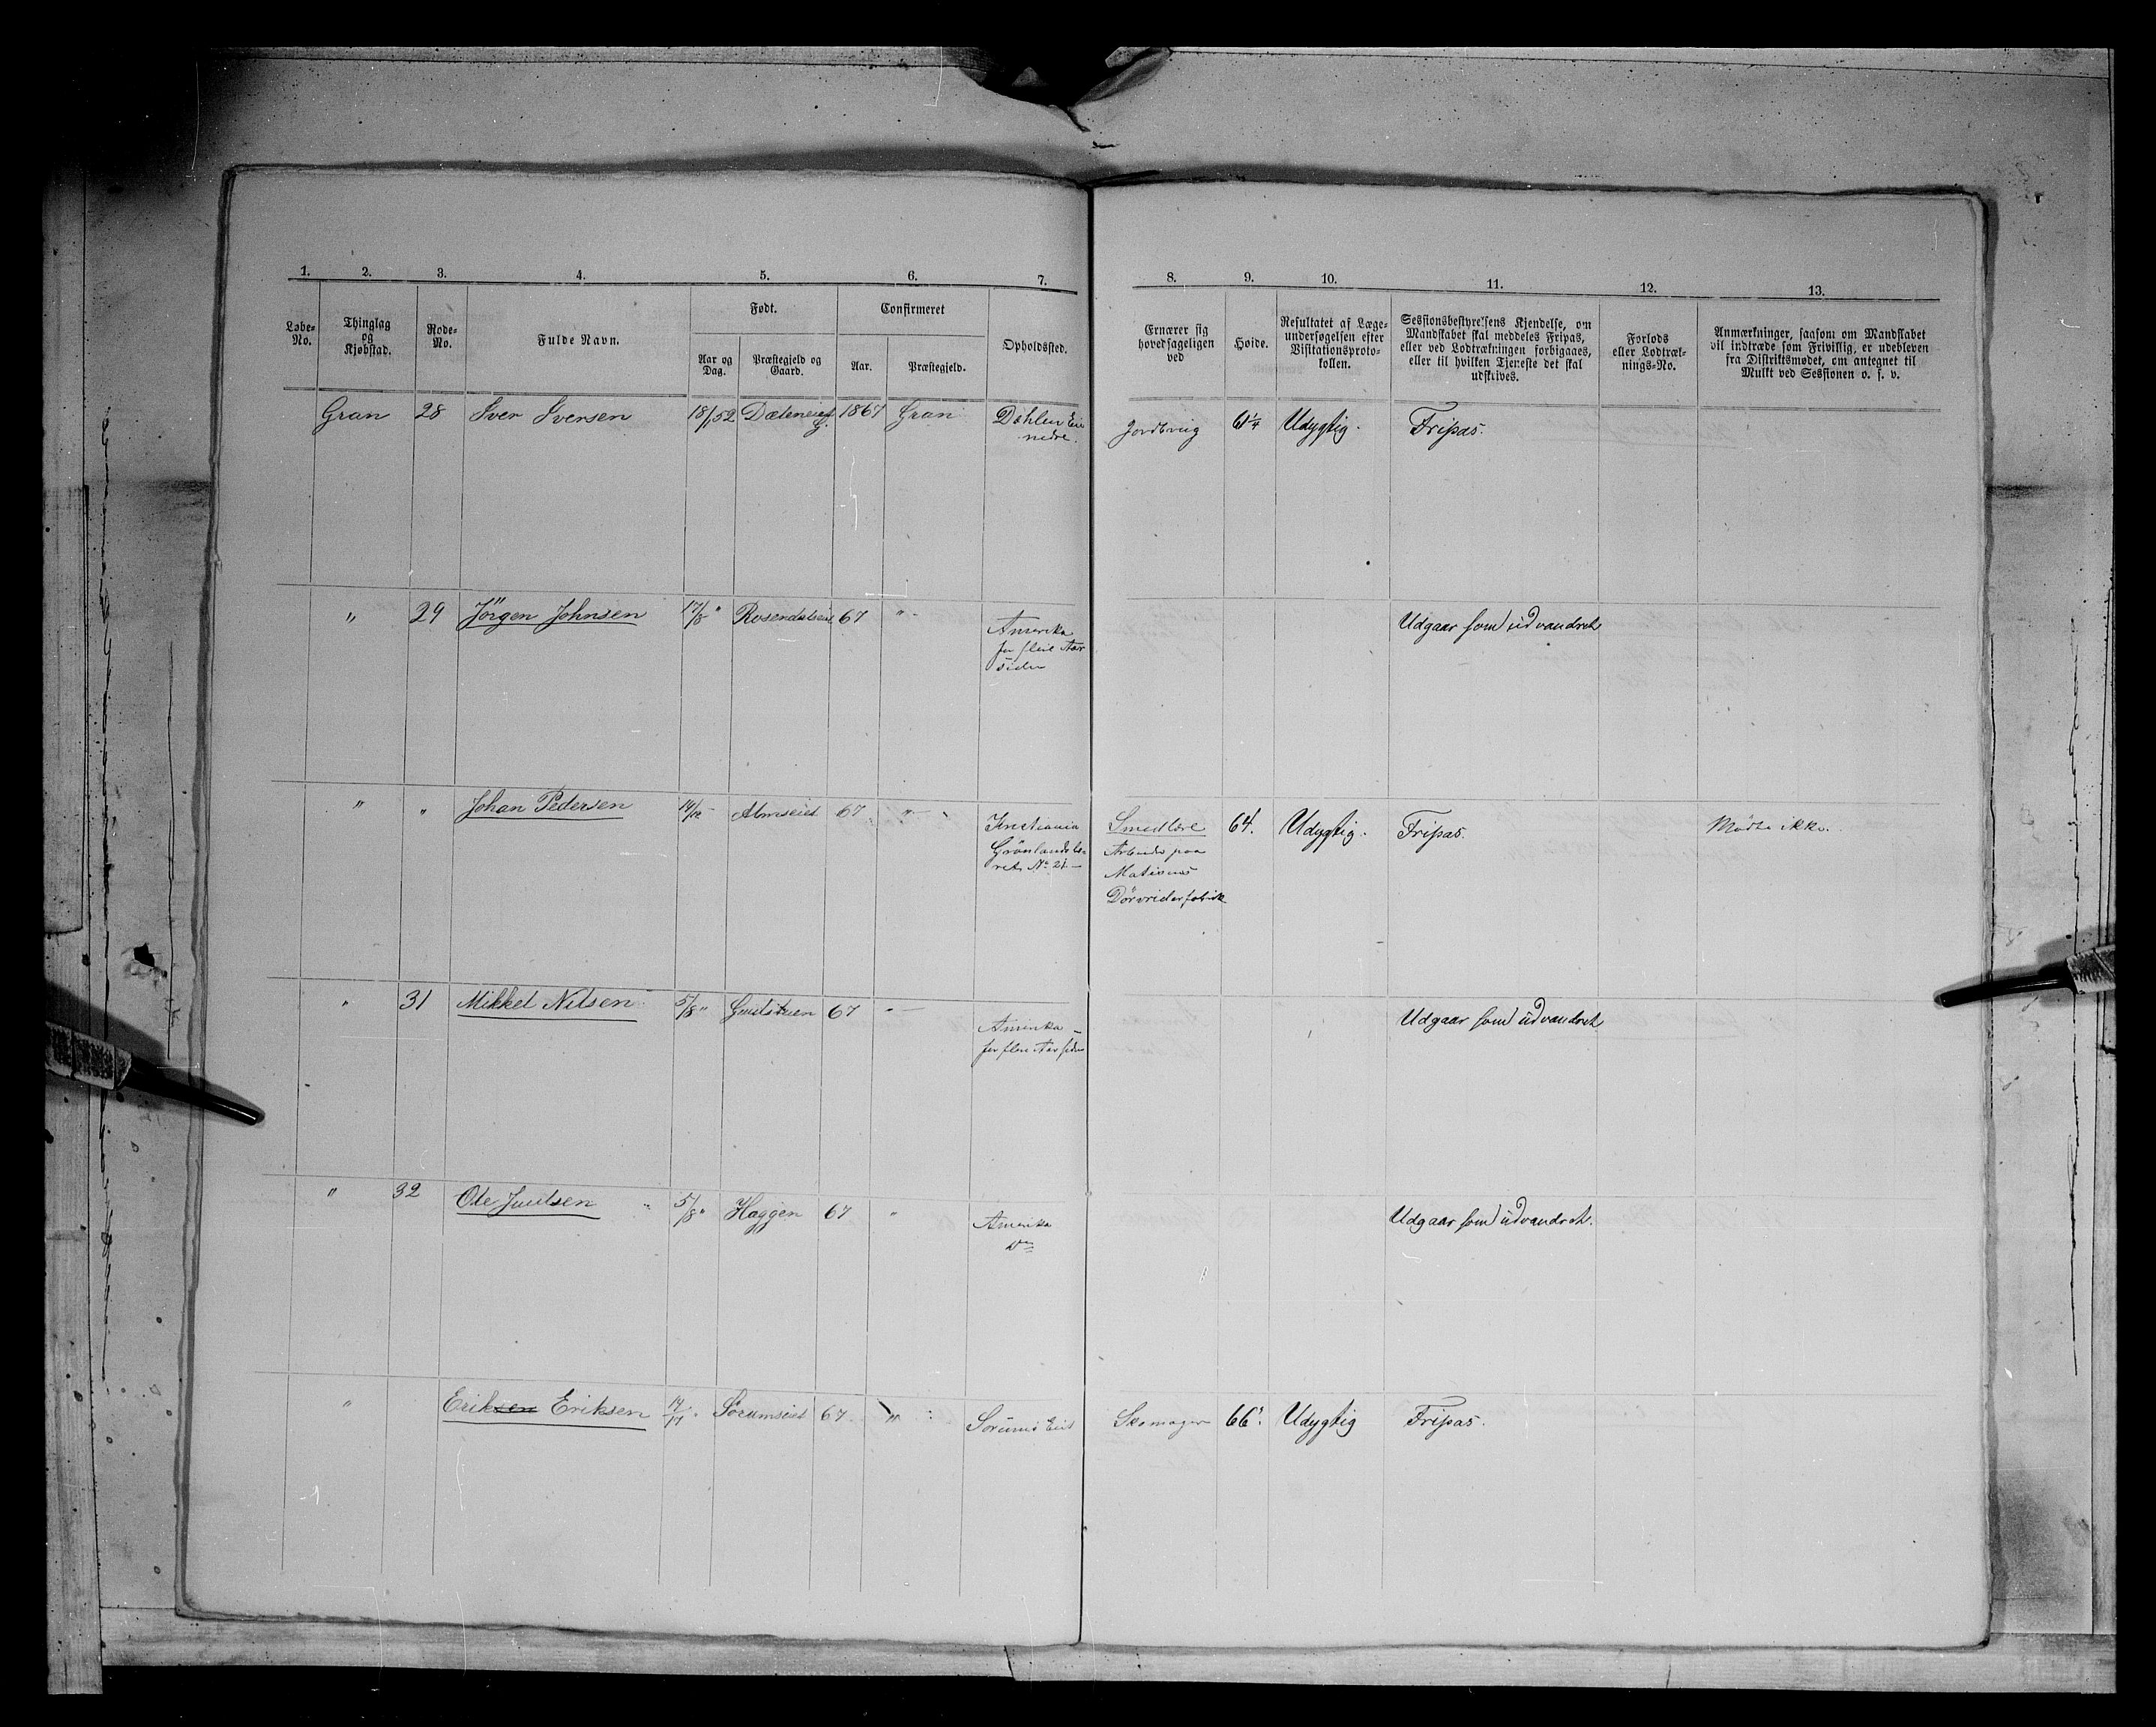 1. 2. 3. 4. 5. 6. 7. 8. 9. 10. 11. 12. 13.
Løbe-No.
Thinglag og Kjøbstad.
Rode-No.
Fulde Navn.
Født.
Aar og Dag.
Præstegjeld og Gaard.
Confirmeret
Aar.
Præstegjeld.
Opholdssted.
Ernærer sig hovedsageligen ved
Høide.
Resultatet af Læge-undersøgelsen efter Visitationsproto-kollen.
Sessionsbestyrelsens Kjendelse, om Mandskabet skal meddeles Fripas, eller ved Lodtrækningen forbigaaes, eller til hvilken Tjeneste det skal udskrives.
Forlods eller Lodtræk-nings-No.
Anmærkninger, saasom om Mandskabet vil indtræde som Frivillig, er udebleven fra Distriktsmødet, om antegnet til Mulkt ved Sessionen o. s. v.
Gran 28 Iver Iversen 1867 Gran Jordbrug 61¼ Udygtig. Fripas.
nedre.
" 29 Jörgen Johnsen 17/8 " Rosendalseie 67 " Udgaar som udvandret
Amerika
for flere Aar
siden
" " Johan Pedersen Almseiet 67 " Smedlære 64. Udygtig. Fripas. Mødte ikke.
Kristiania
Grönlandsle-
ret No 21
Arbeider paa
Dörvriderfabrik
" 31 Mikkel Nilsen 5/8 " 67 " Udgaar som udvandret
Amerika
for flere Aar siden
" 32 Ole Juulsen 5/8 " Haggen 67 " Udgaar som udvandret.
Amerika
" Eriksen Eriksen Sörumseiet 67 " Sörums Eiet Skomager 66 Udygtig Fripas.